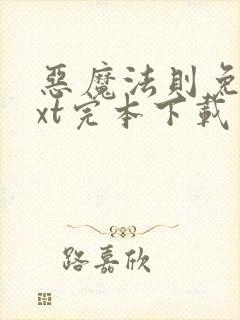 惡魔法則免
xt完本下載
路嘉欣